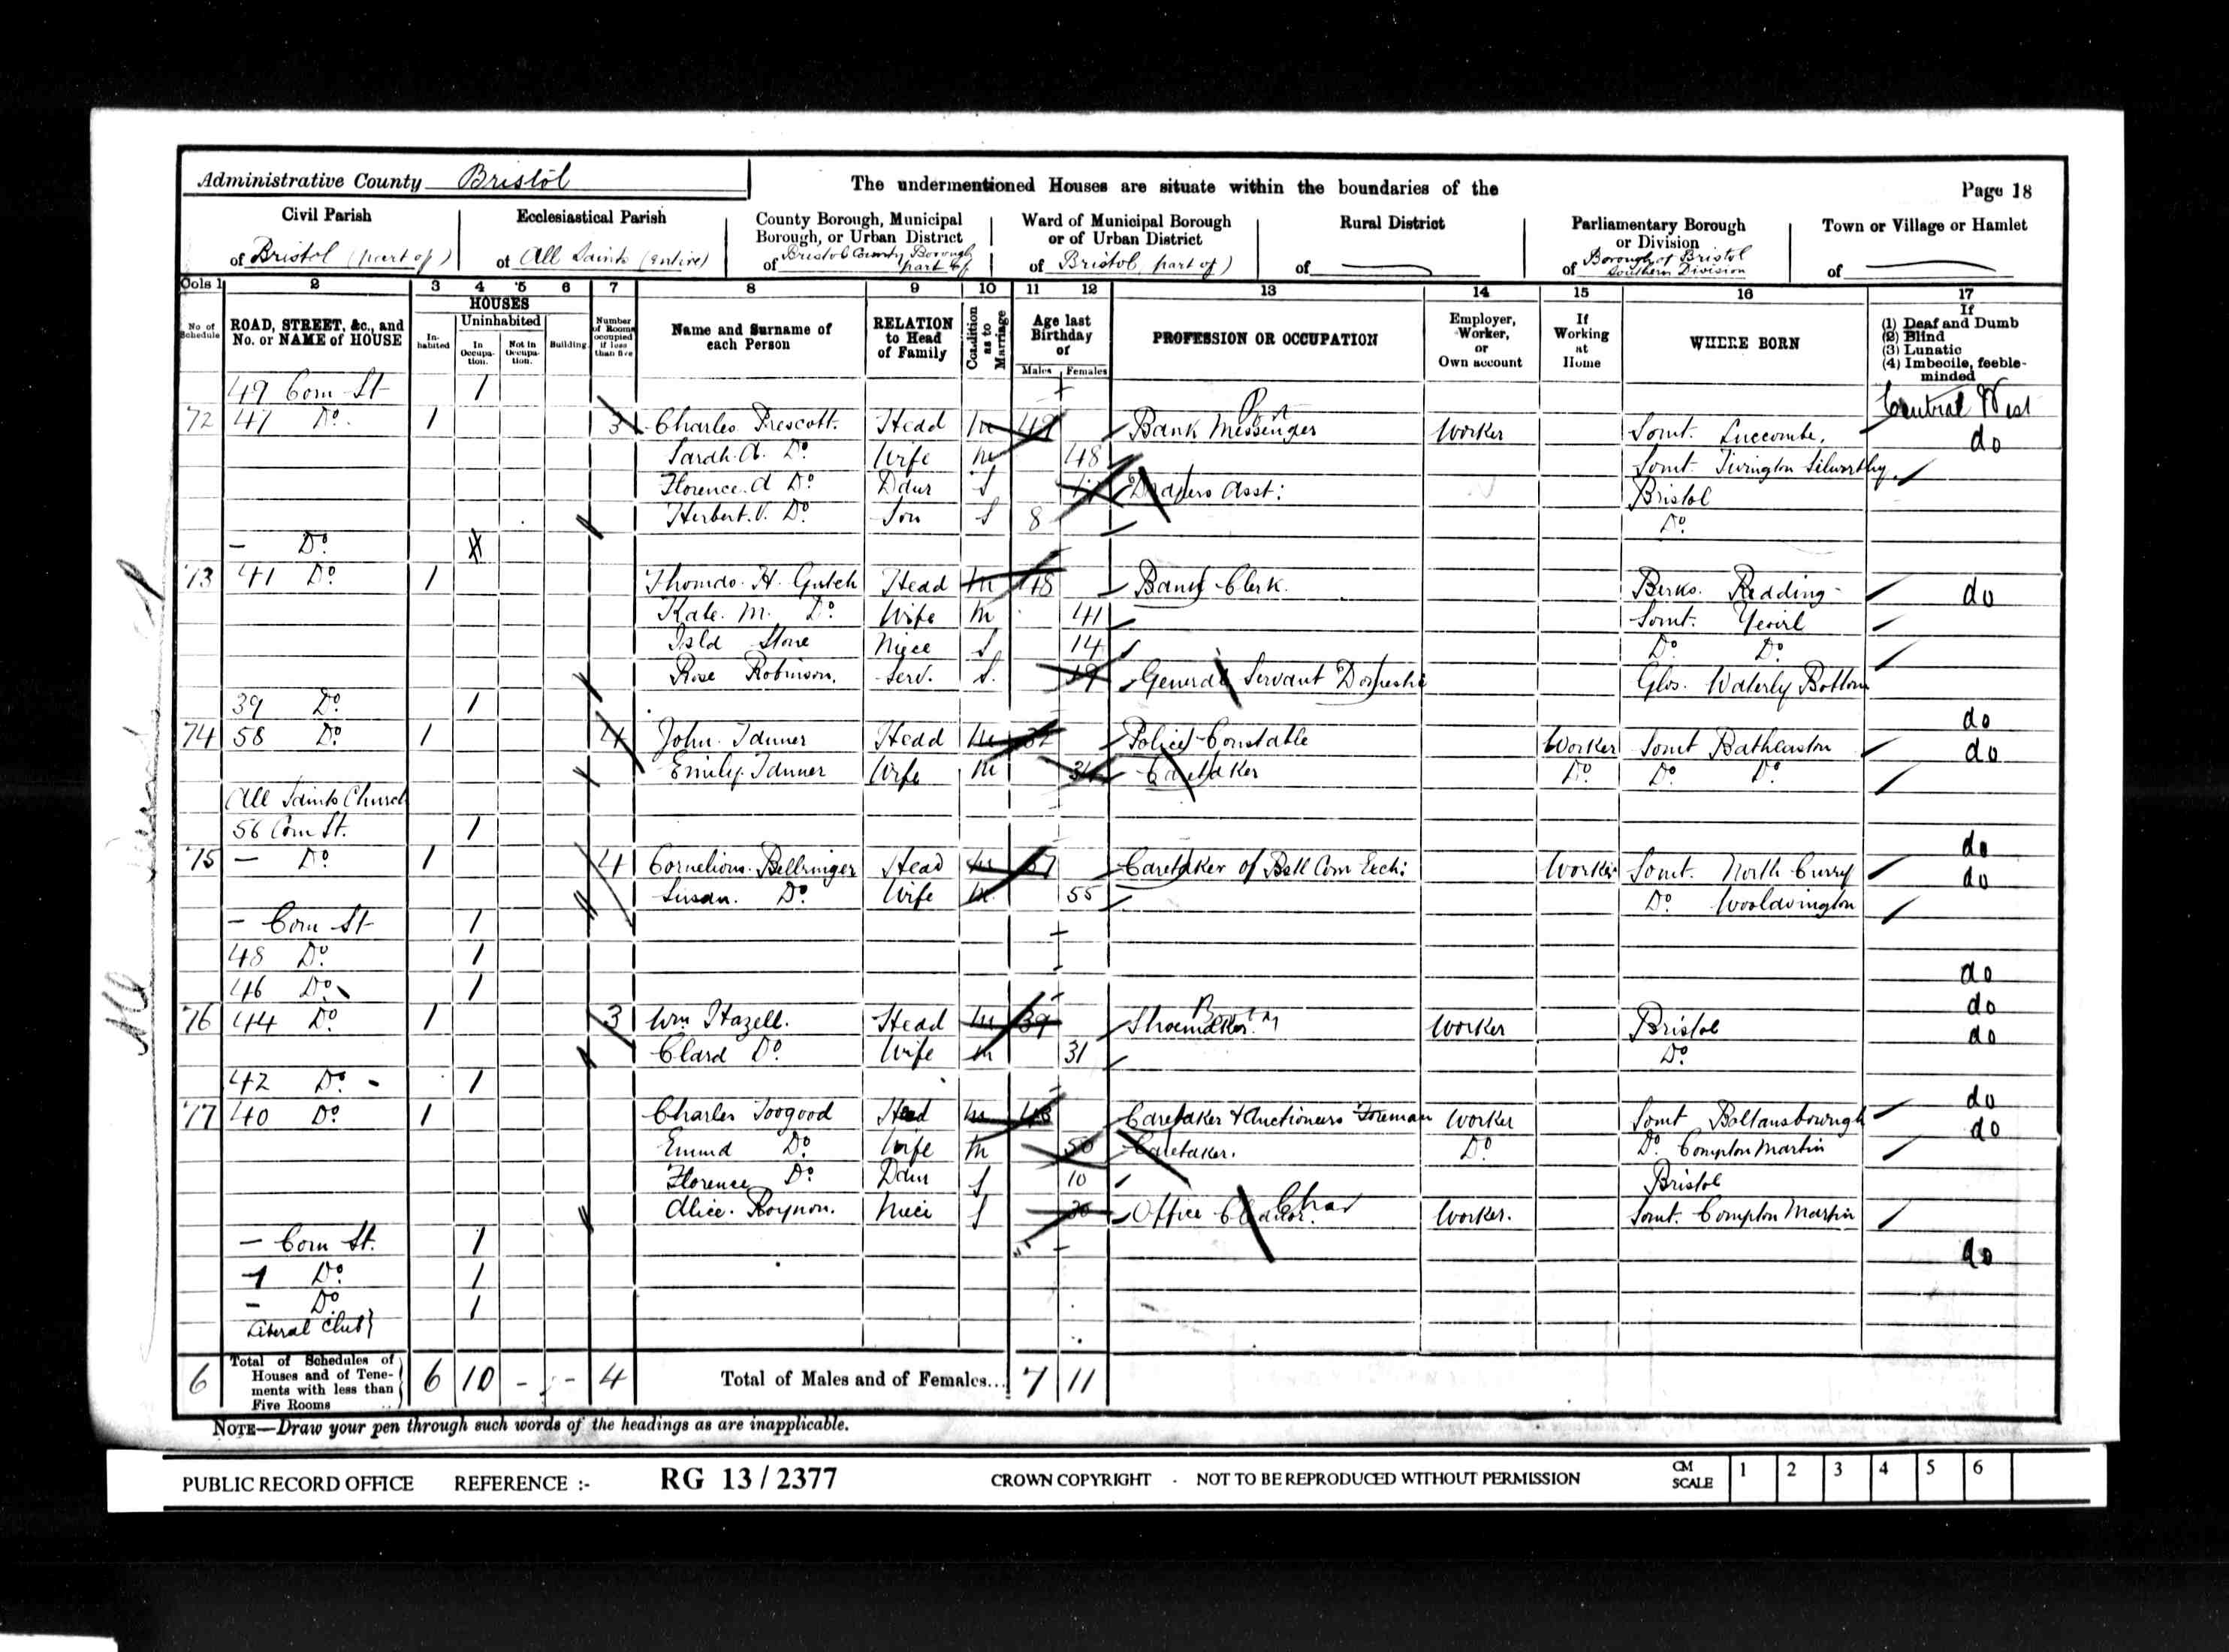 Administrative County Bristol
The undermentioned Houses are situate within the boundaries of the
Page 18
Civil Parish of Bristol (part of)
Ecclesiastical Parish of All Saints (entire)
County Borough, Municipal Borough, or Urban District of Bristol County Borough part of
Ward of Municipal Borough or of Urban District of Bristol (part of)
Rural District of
Parliamentary Borough or Division of Borough of Bristol Southern Division
Town or Village or Hamlet of
Cols 1 2 3 4 5 6 7 8 9 10 11 12 13 14 15 16 17
No of Schedule
ROAD, STREET, &c., and No. or NAME of HOUSE
HOUSES
Inhabited
Uninhabited
In Occupation.
Not in Occupation.
Building.
Number of Rooms occupied if less than five
Name and Surname of each Person
RELATION to Head of Family
Condition as to Marriage
Age last Birthday of
Males Females
PROFESSION OR OCCUPATION
Employer, Worker, or Own account
If Working at Home
WHERE BORN
If
(1) Deaf and Dumb
(2) Blind
(3) Lunatic
(4) Imbecile, feeble-minded
49 Corn St 1 Central West
72 47 Do. 1 3 Charles Prescott. Head M Bank Messenger Worker Somt. Luccombe. do
Sarah. A. Do Wife M 48 Somt Tivington Silworthy
Florence. A Do Daur S Drapers Asst: Bristol
Herbert. V. Do Son S 8 Do
- Do
73 41 Do 1 Thomas. H. Gutch Head M 48 Bank Clerk. Berks. Redding do
Kate. M. Do Wife M 41 Somt. Yeovil
Stone Niece S 14 Do Do
Rose Robinson. Serv. S. 19 General Servant Domestic Glos. Waterly Bottom
39 Do 1 do
74 58 Do 1 4 John. Tanner Head M Police Constable Worker Somt Batheaston do
Emily. Tanner Wife M Caretaker Do Do Do
All Saints Church
56 Corn St. 1 do
75 - Do 1 4 Cornelious. Bellringer Head M Caretaker of Corn Exch: Worker Somt. North Curry do
Susan. Do Wife M 55 Do Woolavington
- Corn St 1
48 Do 1 do
46 Do 1 do
76 44 Do 1 3 Wm Hazell. Head M 39 Shoemaker. Worker Bristol do
Clara Do Wife M 31 Do
42 Do - 1 do
77 40 Do 1 Charles Toogood Head M 48 Caretaker & Auctioneers Foreman Worker Somt Baltansbourugh do
Emma Do Wife M 50 Caretaker. Do Do Compton Martin
Florence Do Daur S 10 Bristol
Alice. Roynon. Niece S Office Cleaner. Char Worker. Somt. Compton Martin
- Corn St. 1 do
Do 1
- Do 1
Liberal Club}
6 Total of Schedules of Houses and of Tenements with less than Five Rooms 6 10 - - 4 Total of Males and of Females... 7 11
NOTE—Draw your pen through such words of the headings as are inapplicable.
PUBLIC RECORD OFFICE REFERENCE :- RG 13 / 2377 CROWN COPYRIGHT - NOT TO BE REPRODUCED WITHOUT PERMISSION CM SCALE 1 2 3 4 5 6